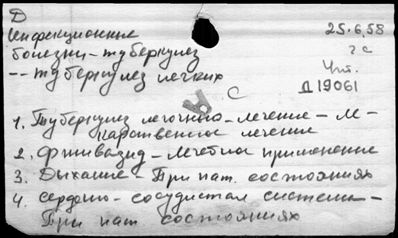 Д
Инфекционные
25.6.58
болезни - туберкулез
2 с
-- туберкулез легких
Чит.
Д 19061
С
1. Туберкулез легочный - лечение - Ле-
карственное лечение
2. Фтивазид - Лечебное применение
3. Дыхание - При пат. состояниях
4. Сердечно - сосудистая система -
При пат состояниях